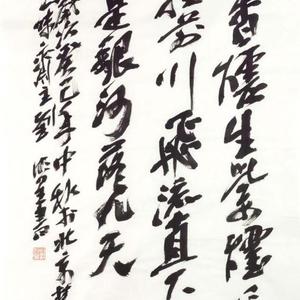 香爐生紫煙
前川飛流直下
是銀河落九天
歲次癸巳年中秋於北京
味永齋主劉